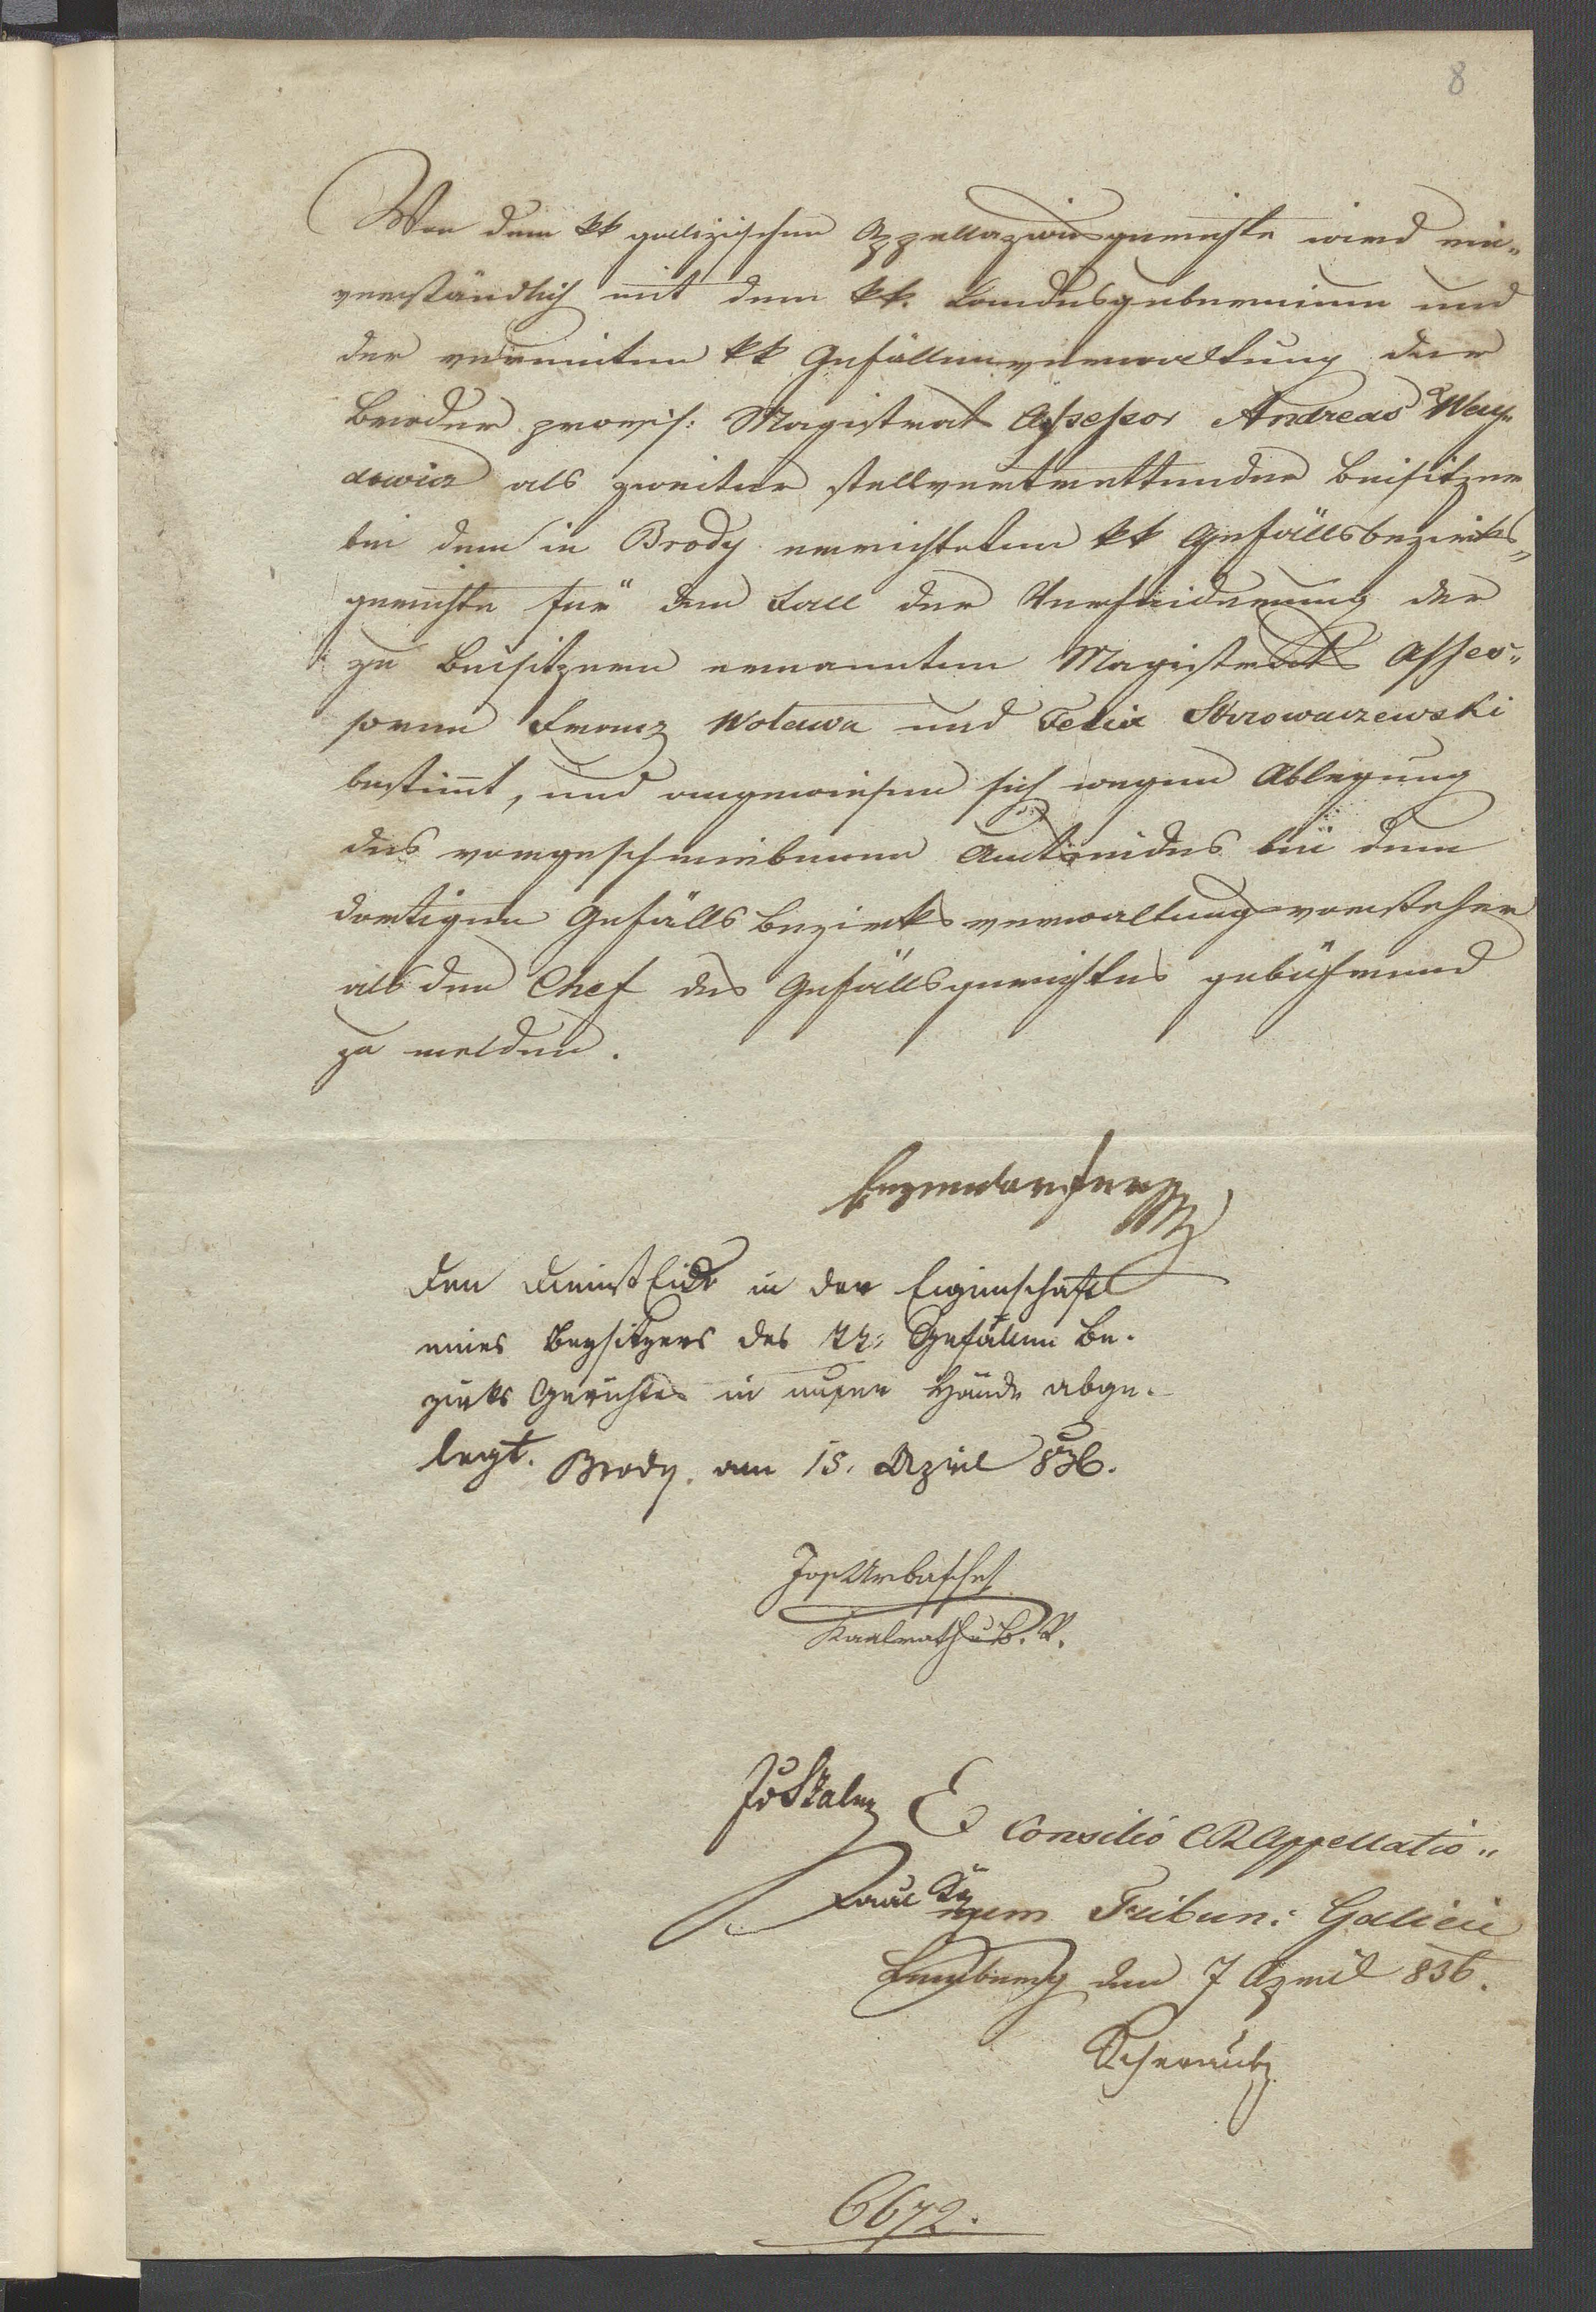 8
Von dem kk galizischen Appellazionsgerichte wird ein„
verständlich mit dem kk. Landesgubernium und
der vereinten kk Gefällenverwaltung der
Broder provis: Magistrat Assessor Andreas
als zweiter stellvertrettender Beisitzer
bei dem in Brody errichteten kk Gefällsbezirks„
gerichte für den Fall der Verhinderung der
zu Beisitzern ernannten Magistrats Asses„
soren Franz Wolawa und Felix
bestimt, und angewiesen sich wegen Ablegung
des vorgeschriebenen Amtseides bei dem
dortigen Gefälls Bezirks verwaltungsvorsteher
als den Chef des Gefällsgerichtes gebührend
zu melden.
Den Diensteid in der Eigenschaft
eines Beysitzers des kk: Gefällen Be-
zirks Gerichtes in meine Hände abge-
legt. Brody am 18. April 836.
Jos Urbaschek
E Consilio CR Appellatio„
num Tribun: Galicii
Lemberg den 7 April 836.
6672.